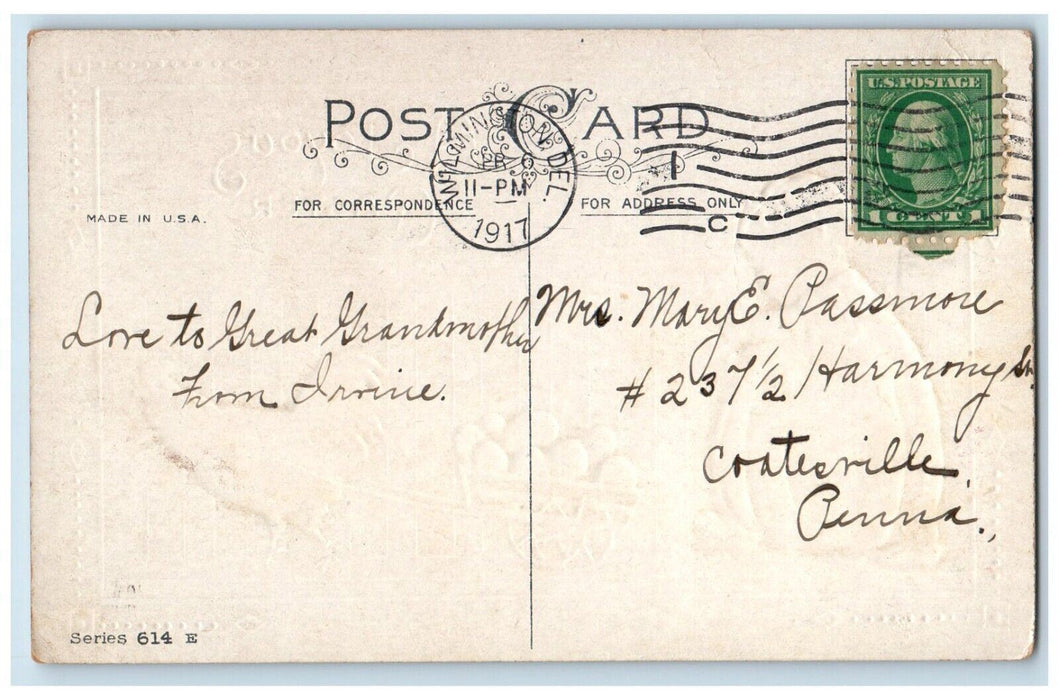 POST CARD
U.S. POSTAGE
1 CENT 1
WILMINGTON, DEL.
11-PM
1917
C
FOR CORRESPONDENCE
FOR ADDRESS ONLY
MADE IN U.S.A.
Love to Great Grandmother
From Irvine.
Mrs. Mary E. Passmore
# 237 1/2 Harmony St.
Coatesville
Penna.,
Series 614 E